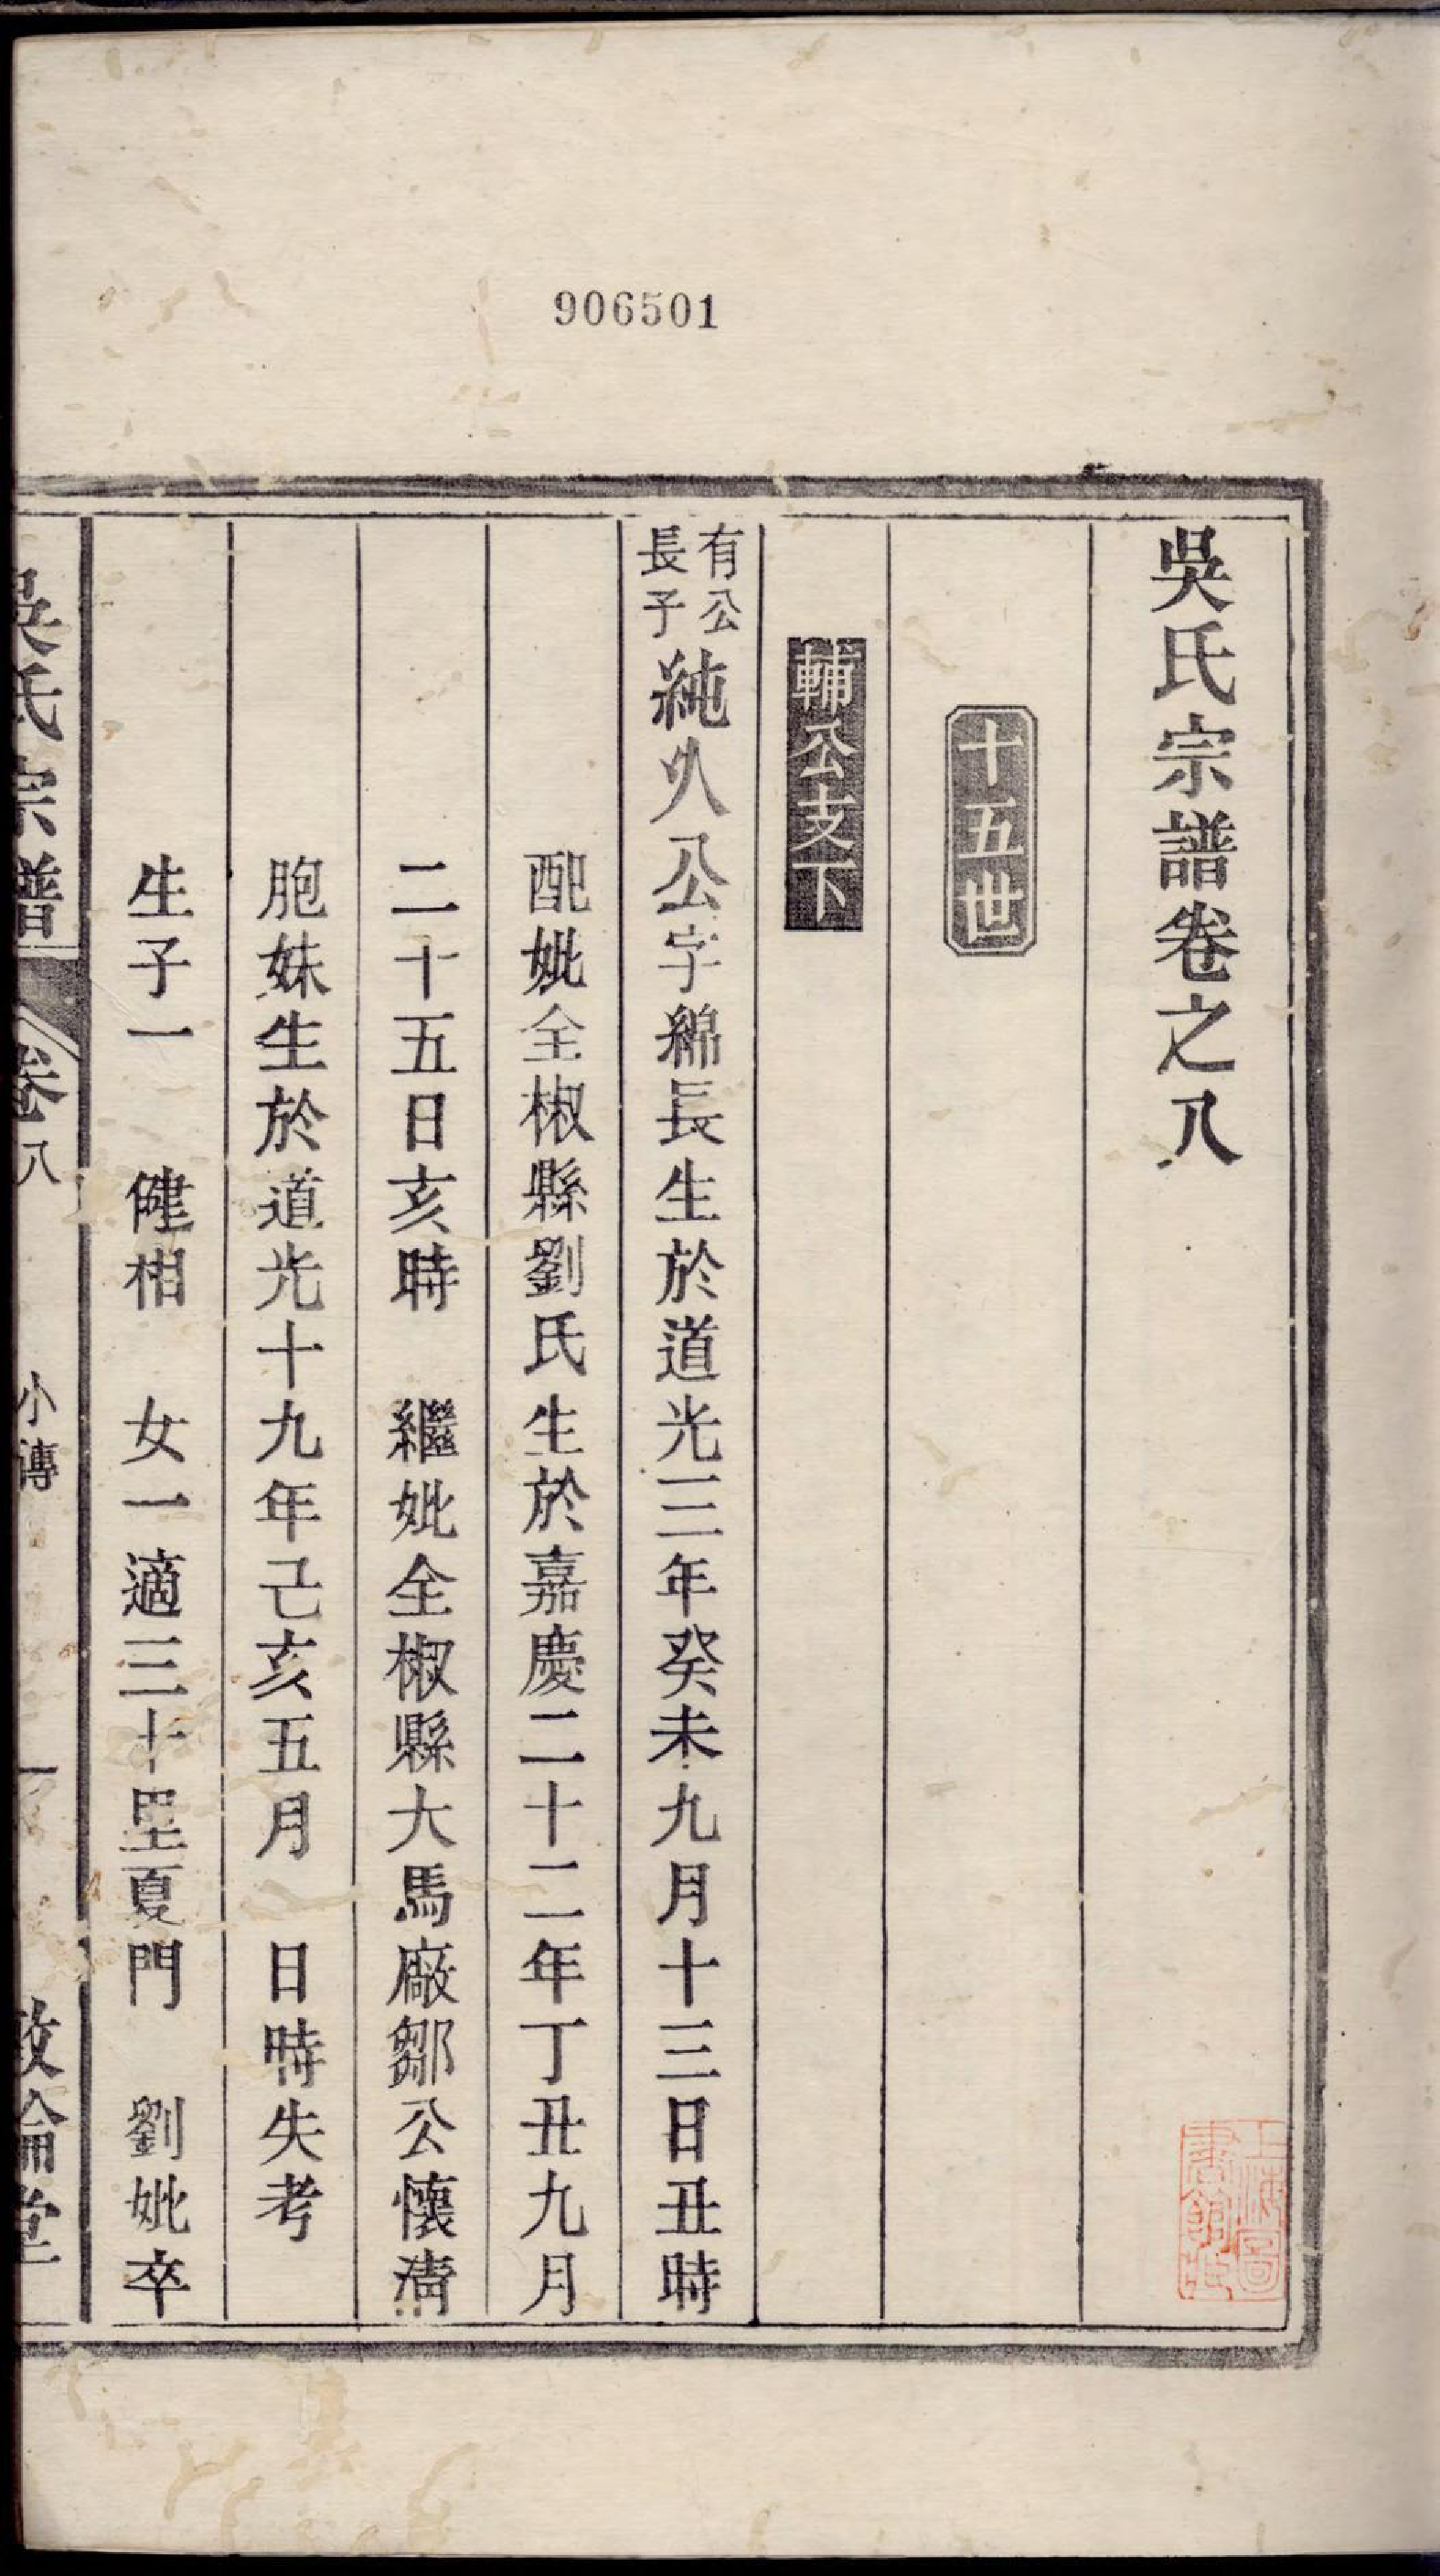 906501
吳氏宗譜卷之八
十五世
輔公支下
有公長子純久公字綿長生於道光三年癸未九月十三日丑時
配妣全椒縣劉氏生於嘉慶二十二年丁丑九月
二十五日亥時 繼妣全椒縣大馬廠鄒公懷清
胞妹生於道光十九年己亥五月 日時失考
生子一 健相 女一適三十里夏門 劉妣卒
吳氏宗譜 卷八 小傳 一 敦倫堂
上海圖書館藏